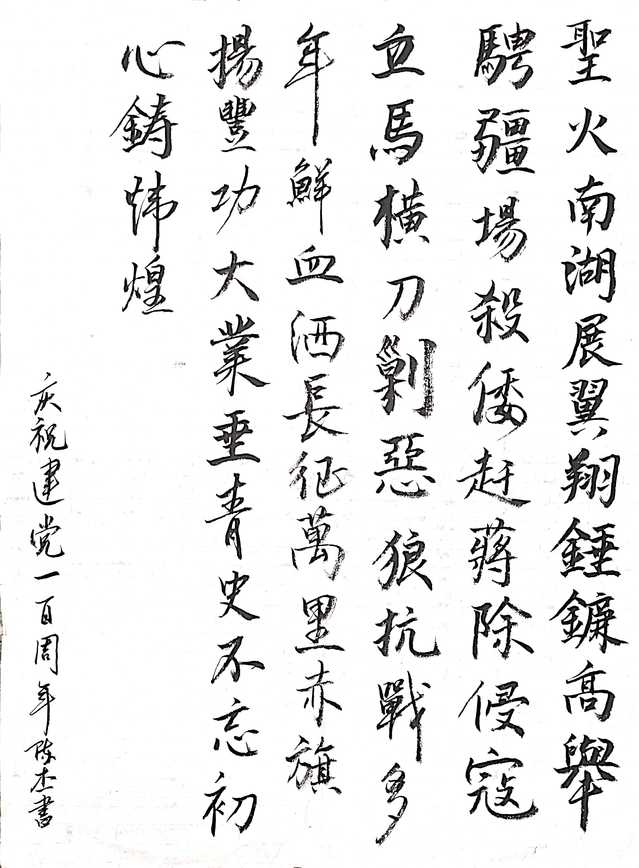 聖火南湖展翼翔錘鐮高舉
騁疆場殺倭赶蔣除侵寇
立馬橫刀剿惡狼抗戰多
年鮮血洒長征萬里赤旗
揚豐功大業垂青史不忘初
心鑄炜煌
庆祝建党一百周年陈杰書